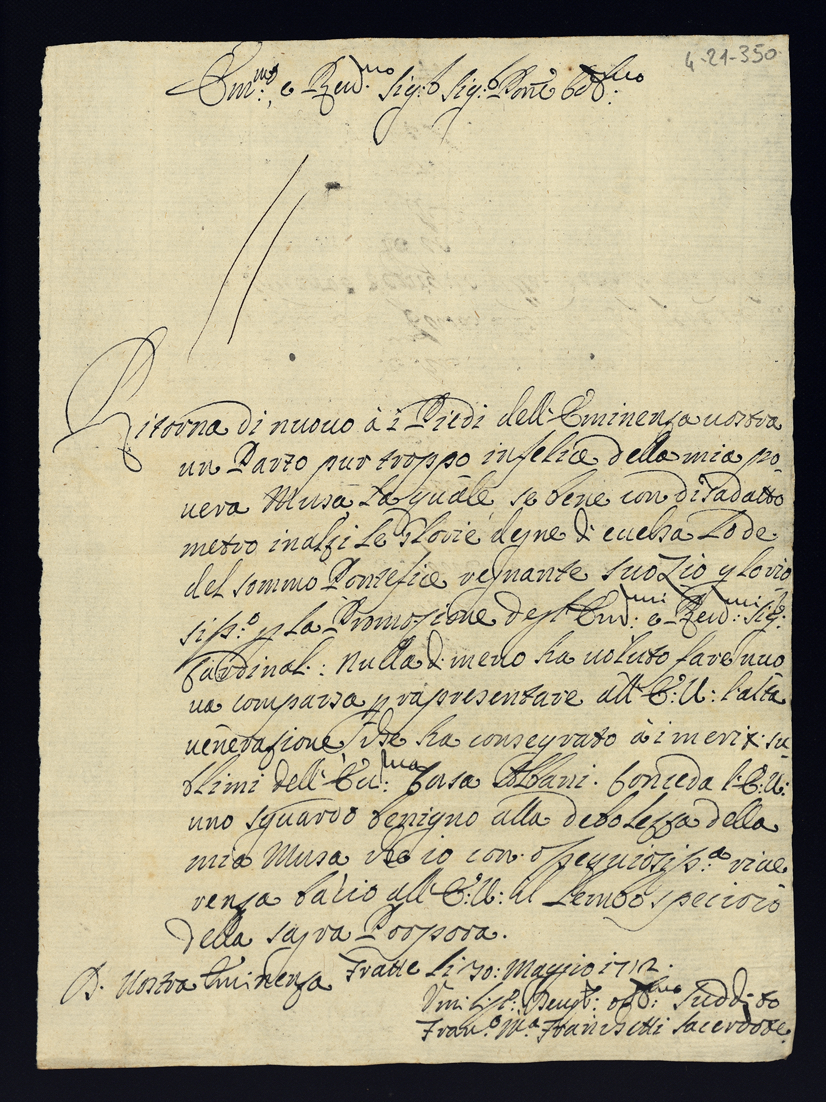 4-21-350
Em.mo, e Reud.mo Sig.r Sig.r Pone Col.mo
Ritorna di nuouo à i Piedi dell'Eminenza uostra
un Parto pur troppo infelice della mia po-
uera Musa, la quale se bene con disadatto
metro inalzi le Glorie degne di eccelsa Lode
del sommo Pontefice regnante suo Zio glorio
siss.o p la Promozione degl'Em.mi e Reud.mi Sig.ri
Cardinal: Nulla di meno ha uoluto fare nuo
ua comparsa p rapresentare all'E: U: l'alta
uenerazione, che ha consegrato à i meriti su
blimi dell'Ecc.ma Casa Albani. Conceda l'E: U:
uno sguardo benigno alla debolezza della
mia Musa che io con ossequiosiss.a riue
renza bacio all'E: U: il Lembo specioso
della sagra Porpora.
D. Uostra Eminenza Fratte li 30: Maggio 1712.
Umiliss.o Deuot: oss.mo Suddito
Fran.co M.a Franceschi Sacerdote.